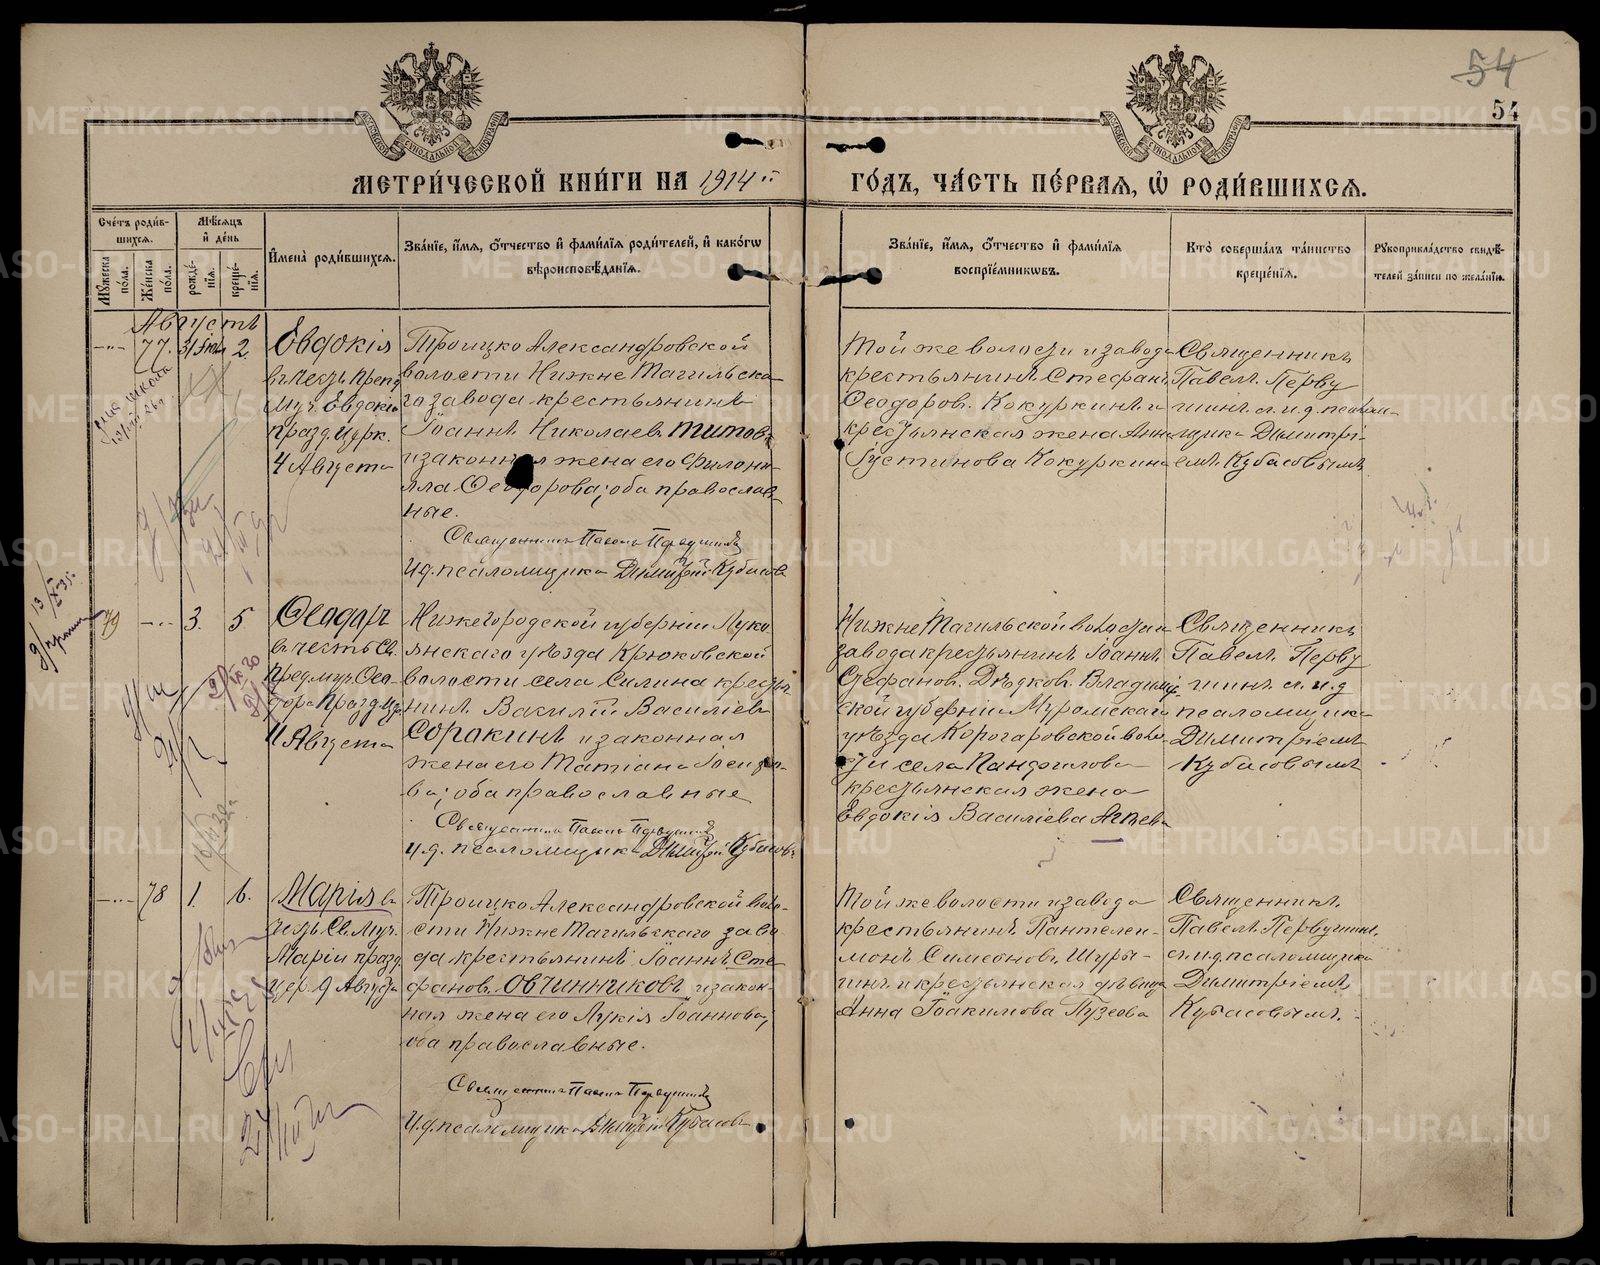 54
54
МЕТРИ́ЧЕСКОЙ КНИ́ГИ НА 1914 й
ГО́ДЪ, ЧА́СТЬ ПЕ́РВАЯ, Ѡ РОДИ́ВШИХСЯ.
Сче́тъ роди́в-
шихся.
Мѣ́сяцъ
и҆ де́нь
Му́жеска по́ла.
Же́нска по́ла.
рожде́-
нїя.
креще́-
нїя.
И҆мена̀ роди́вшихся.
Зва́нїе, и҆́мя, о҆́тчество и҆ фами́лїя роди́телей, и҆ како́гѡ
вѣроисповѣ́данїя.
Зва́нїе, и҆́мя, о҆́тчество и҆ фами́лїя
воспрїе́мникѡвъ.
Кто̀ соверша́лъ та́инство
креще́нїя.
Рꙋкоприкла́дство свидѣ́-
телей за́писи по жела́нїю.
Августъ
77. 31 Іюля 2.
Евдокія
въ честь Преп.
Муч. Евдокіи
празд. церк.
4 Августа
Троицко Александровской
волости Нижне Тагильска-
го завода крестьянинъ
Іоаннъ Николаевъ Титовъ
и законная жена его Филони-
лла Ѳеодорова; оба православ-
ные.
Священникъ Павелъ Первушинъ
И.д. псаломщика Димитрій Кубасовъ
Той же волости и завода
крестьянинъ Стефанъ
Ѳеодоров. Кокуркинъ и
крестьянская жена Анна
Іустинова Кокуркина
Священникъ
Павелъ Перву
шинъ с. и. д. псалом-
щика Димитрі-
емъ Кубасовымъ
79 3. 5
Ѳеодоръ
въ честь Св.
Пред. муч. Ѳео-
дора празд. цер.
11 Августа
Нижегородской губерніи Луко
янскаго уѣзда Крюковской
волости села Силина крестья
нинъ Василій Василіевъ
Соракинъ и законная
жена его Татіана Іосифо-
ва; оба православные
Священникъ Павелъ Первушинъ
И.д. псаломщика Димитрій Кубасовъ
Нижне Тагильской волости и
завода крестьянинъ Іоаннъ
Стефанов. Дѣдков. Владимір
ской губерніи Муромскаго
уѣзда
села Панфилова
крестьянская жена
Евдокія Василіева Агѣева
Священникъ
Павелъ Перву
шинъ с. и. д
псаломщика
Димитріемъ
Кубасовымъ
78 1. 6.
Марія въ
честь Св. Муч.
Маріи празд.
цер. 9 Августа
Троицко Александровской воло-
сти Нижне Тагильскаго заво
да крестьянинъ Іоаннъ Сте
фанов. Овчинниковъ и закон-
ная жена его Лукія Іоаннова;
оба православные.
Священникъ Павелъ Первушинъ
И.д. псаломщика Димитрій Кубасовъ
Той же волости и завода
крестьянинъ Пантелеи-
монъ Симеонов. Шуры-
гинъ и крестьянская дѣвица
Анна Іоакимова Пузеова
Священникъ
Павелъ Первушинъ
с. и. д. псаломщика
Димитріемъ
Кубасовымъ.
METRIKI.GASO-URAL.RU